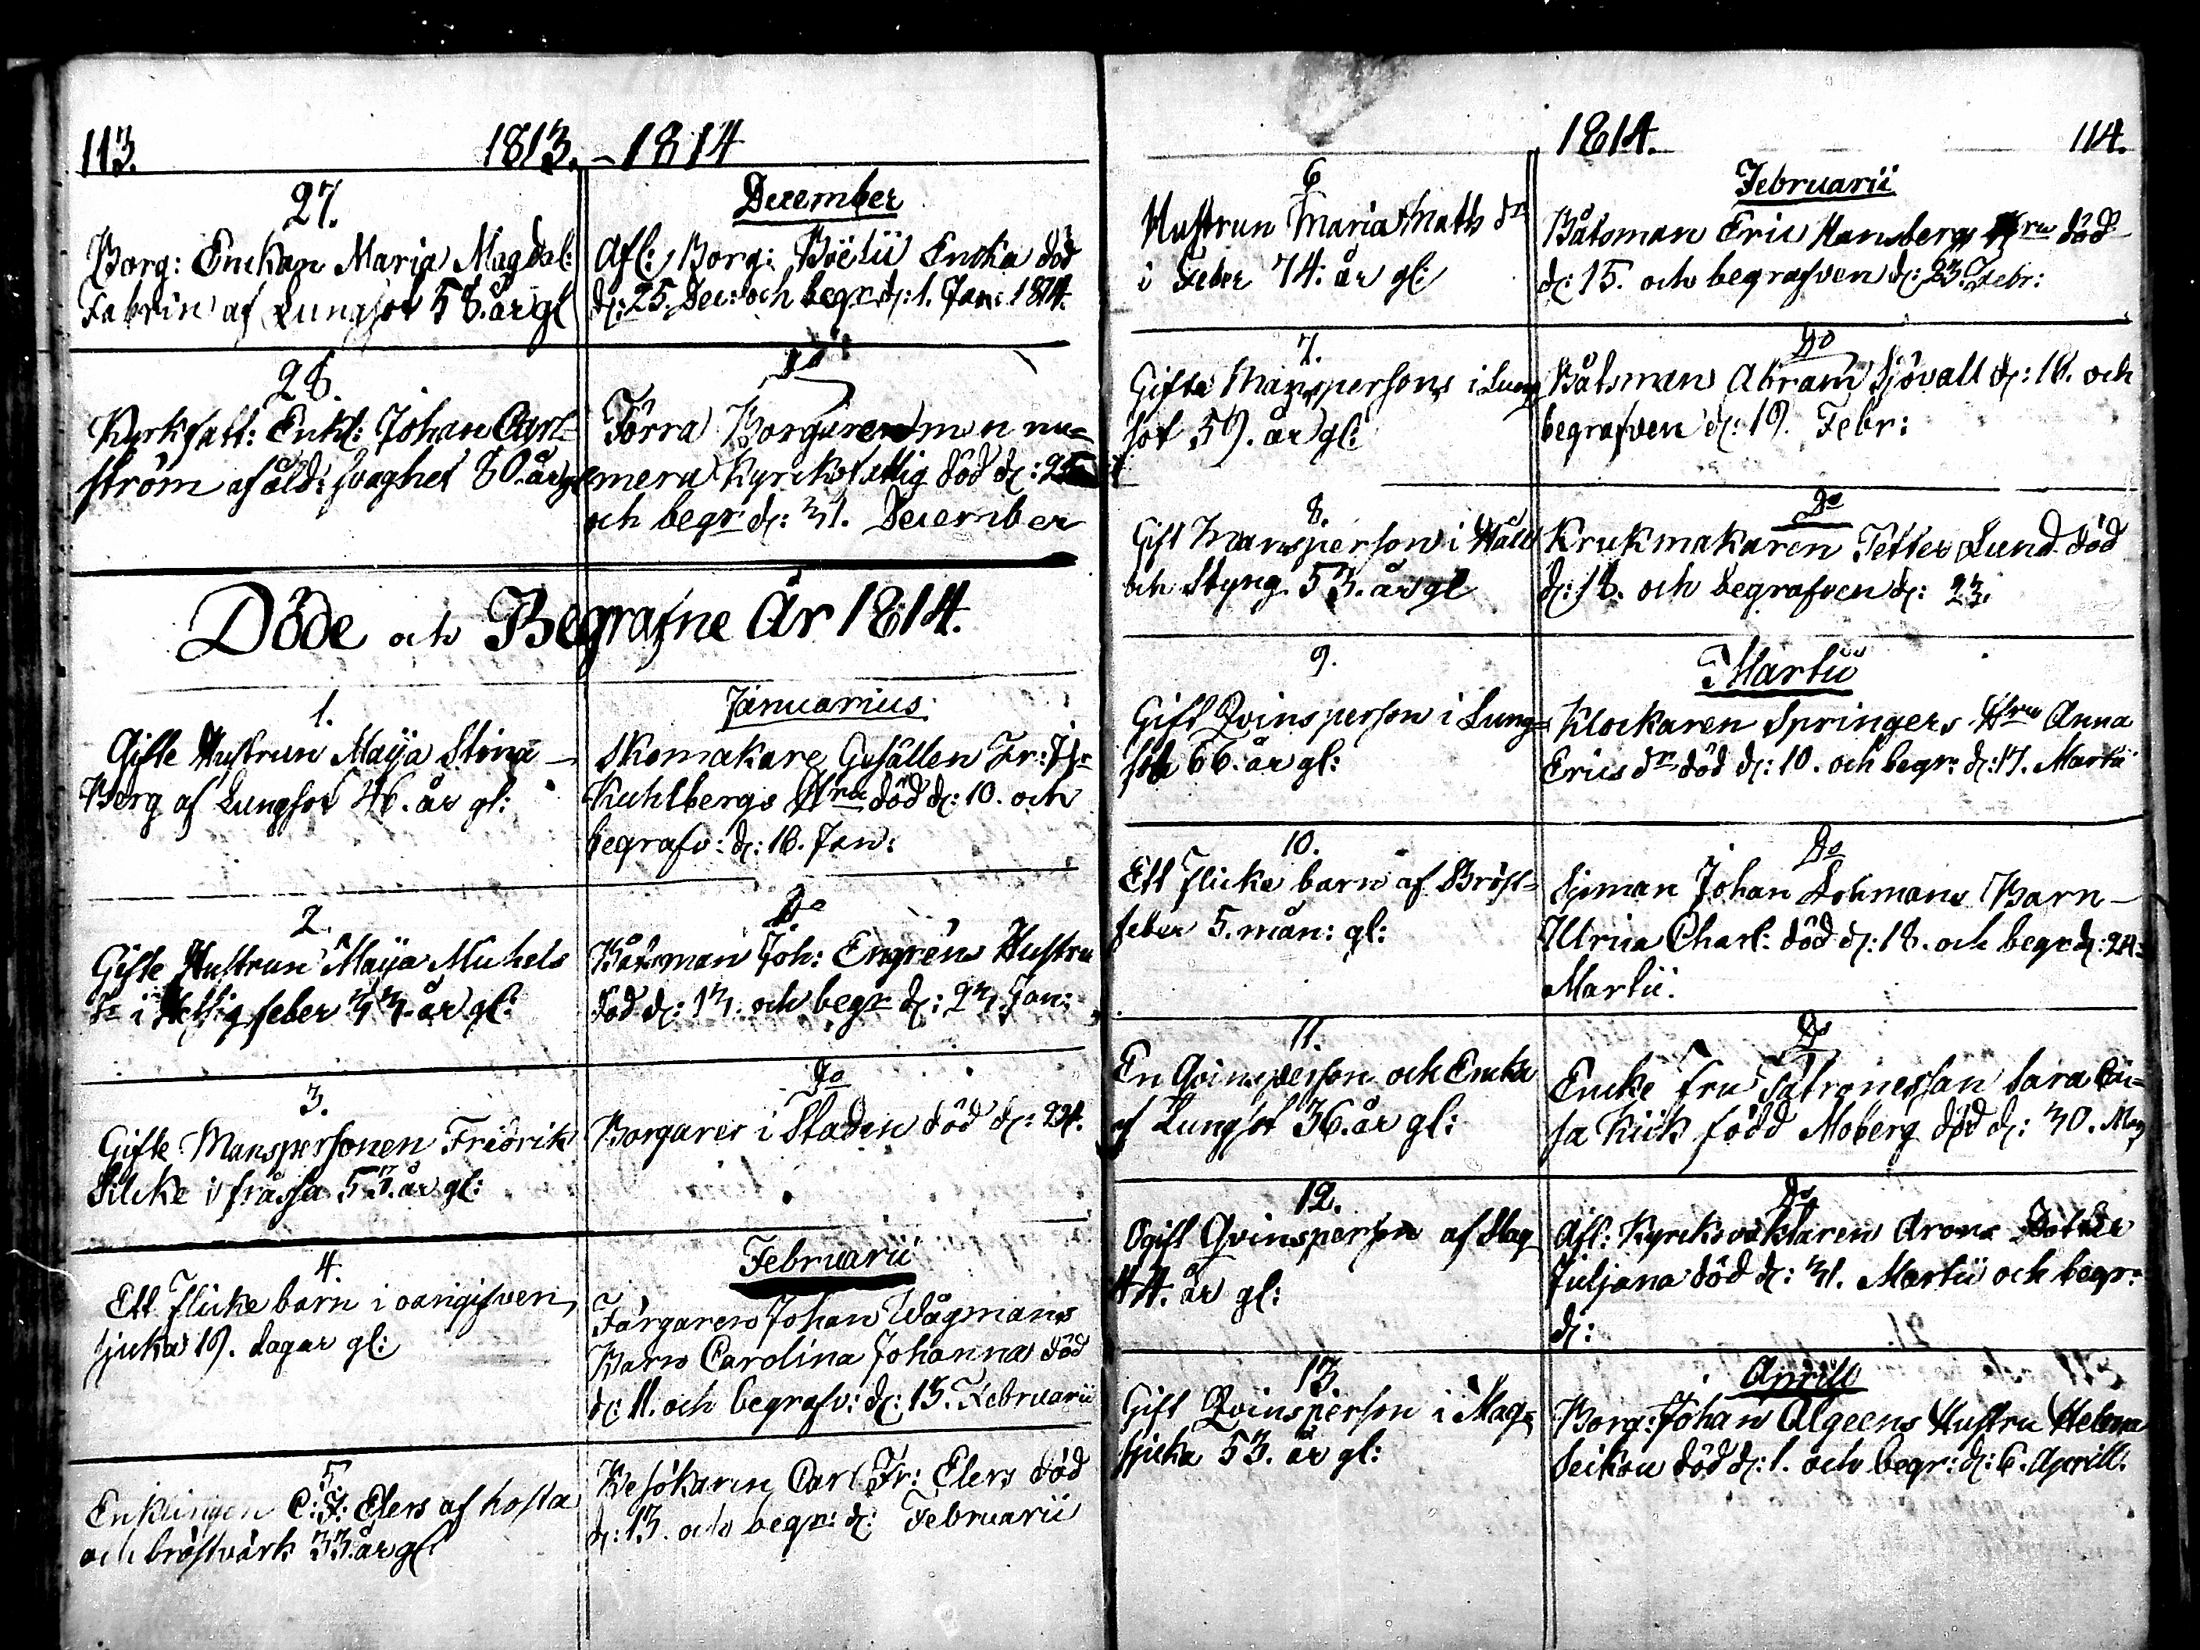 113.
1813.-1814
27.
Borg: Enckan Maria Magdal:
Fabrin af Lungsot 58. år gl
December
Afl: Borg: Boëlii Encka död
d: 25. Dec: och begr d: 1. Jan: 1814.
28.
Kyrkfatt: Enkl: Johan Carl=
ström af åld: svaghet 80. år gl
Do
Förra Borgaren men nu=
mera Kyrckofattig död d:
och begr d: 31. December
Döde och Begrafne År 1814.
1.
Gifte Hustrun Maija Stina
Berg af Lungsot 46. år gl:
Januarius
Skomakare Gesällen Fr:
Kuhlbergs Hru död d: 10. och
begrafv: d: 16. Jan:
2.
Gifte Hustrun Maija Michels
dr i Hettig feber 33. år gl:
Do
Båtsman Joh: Engréns Hustru
död d: 13. och begr d: 23 Jan:
3.
Gifte Manspersonen Fridrik
Silcke i frassa 53. år gl:
Do
Borgares i Staden död d: 24.
4.
Ett Flicke barn i oangifven
sjuka 19. dagar gl:
Februarii
Färgaren Johan Wågmans
Barn Carolina Johanna död
d: 11. och begrafv: d: 15. Februarii
5.
Enklingen C: F: Elers af hosta
och bröstvärk 33. år gl:
Besökaren Carl Fr: Elers död
d: 13. och begr: d: Februarii
1814.
114.
6
Hustrun Maria Maths dr
i Feber 74. år gl:
Februarii
Båtsman Eric Hansbergs Hru död
d: 15. och begrafven d: 23. Febr:
7.
Gifte Manspersons i Lung
sot 59. år gl:
Do
Båtsman Abram Sjövall d: 18. och
begrafven d: 19. Febr:
8.
Gift Mansperson i Håll
och Styng 53. år gl
Do
Krukmakaren Petter Lund död
d: 18. och begrafven d: 23.
9.
Gift Qvinsperson i Lung=
sot 66. år gl:
Martii
Klockaren Springers Hru Anna
Erics dr död d: 10. och begr: d: 17. Martii
10.
Ett Flicke barn af Bröst=
feber 5. mån: gl:
Do
Sjöman Johan Lohmans Barn
Ulrica Charl: död d: 18. och begr d: 24:
Martii.
11.
En Qvinsperson och Encka
af Lungsot 36. år gl:
Do
Encke Fru Patronessan Sara Cai=
sa Kiik född Moberg död d: 30.
12.
Ogift Qvinsperson af Slag
44. år gl:
Do
Afl: Kyrckovaktaren Arons Dotter
Juliana död d: 31. Martii och begr:
d:
13.
Gift Qvinsperson i Mag=
sjuka 53. år gl:
Aprill
Borg: Johan Algeens Hustru Helena
Seikou död d: 1. och begr: d: 6. Aprill: